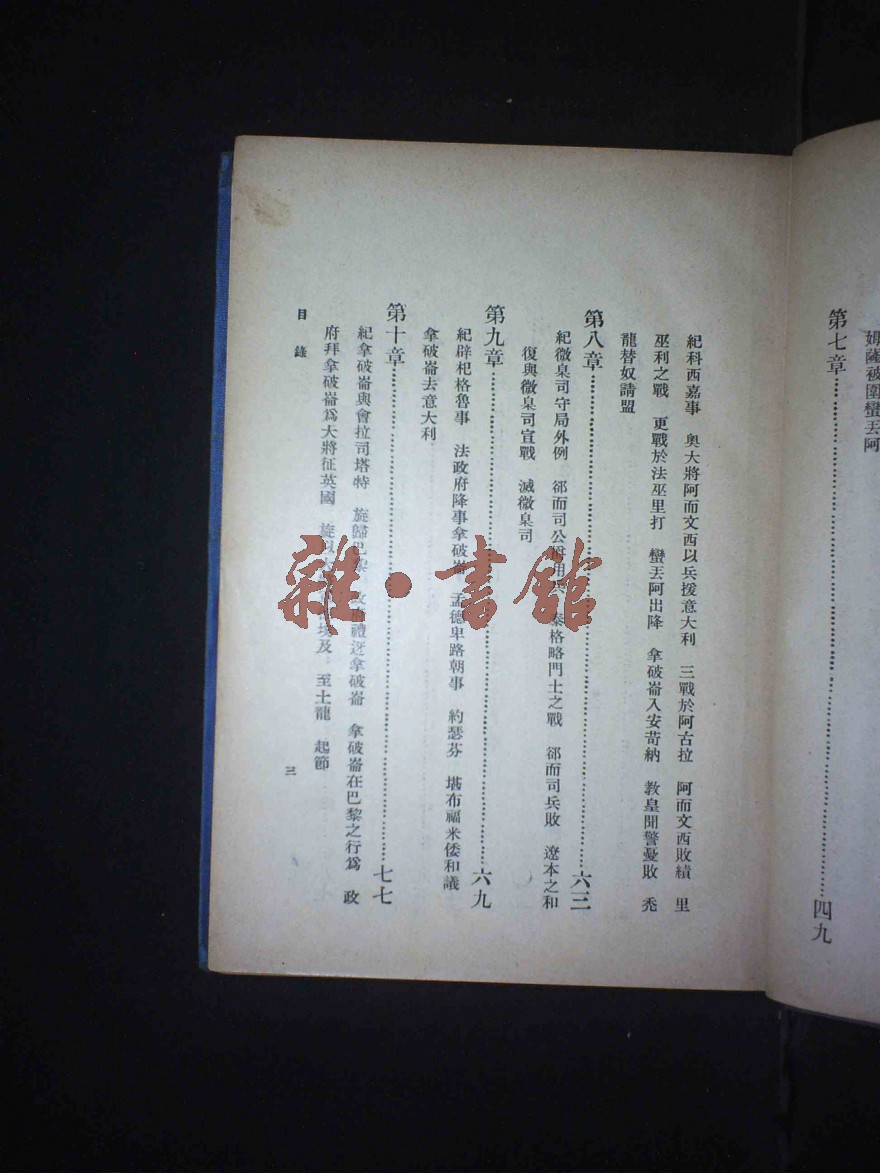 姆薩被圍蠻丟阿
第七章 四九
紀科西嘉事 奧大將阿而文西以兵援意大利 三戰於阿古拉 阿而文西敗績 里
巫利之戰 更戰於法巫里打 蠻丟阿出降 拿破崙入安苛納 教皇聞警憂敗 禿
龍替奴請盟
第八章 六三
紀微臬司守局外例 郤而司公爵用兵 泰格略門士之戰 郤而司兵敗 遼本之和
復與微臬司宣戰 滅微臬司
第九章 六九
紀辟杞格魯事 法政府降事拿破崙 孟德卑路朝事 約瑟芬 堪布福米倭和議
拿破崙去意大利
第十章 七七
紀拿破崙與會拉司塔特 旋歸巴黎 政府禮迓拿破崙 拿破崙在巴黎之行爲 政
府拜拿破崙爲大將征英國 旋以大 埃及 至土龍 起節
目錄
三
雜·書館